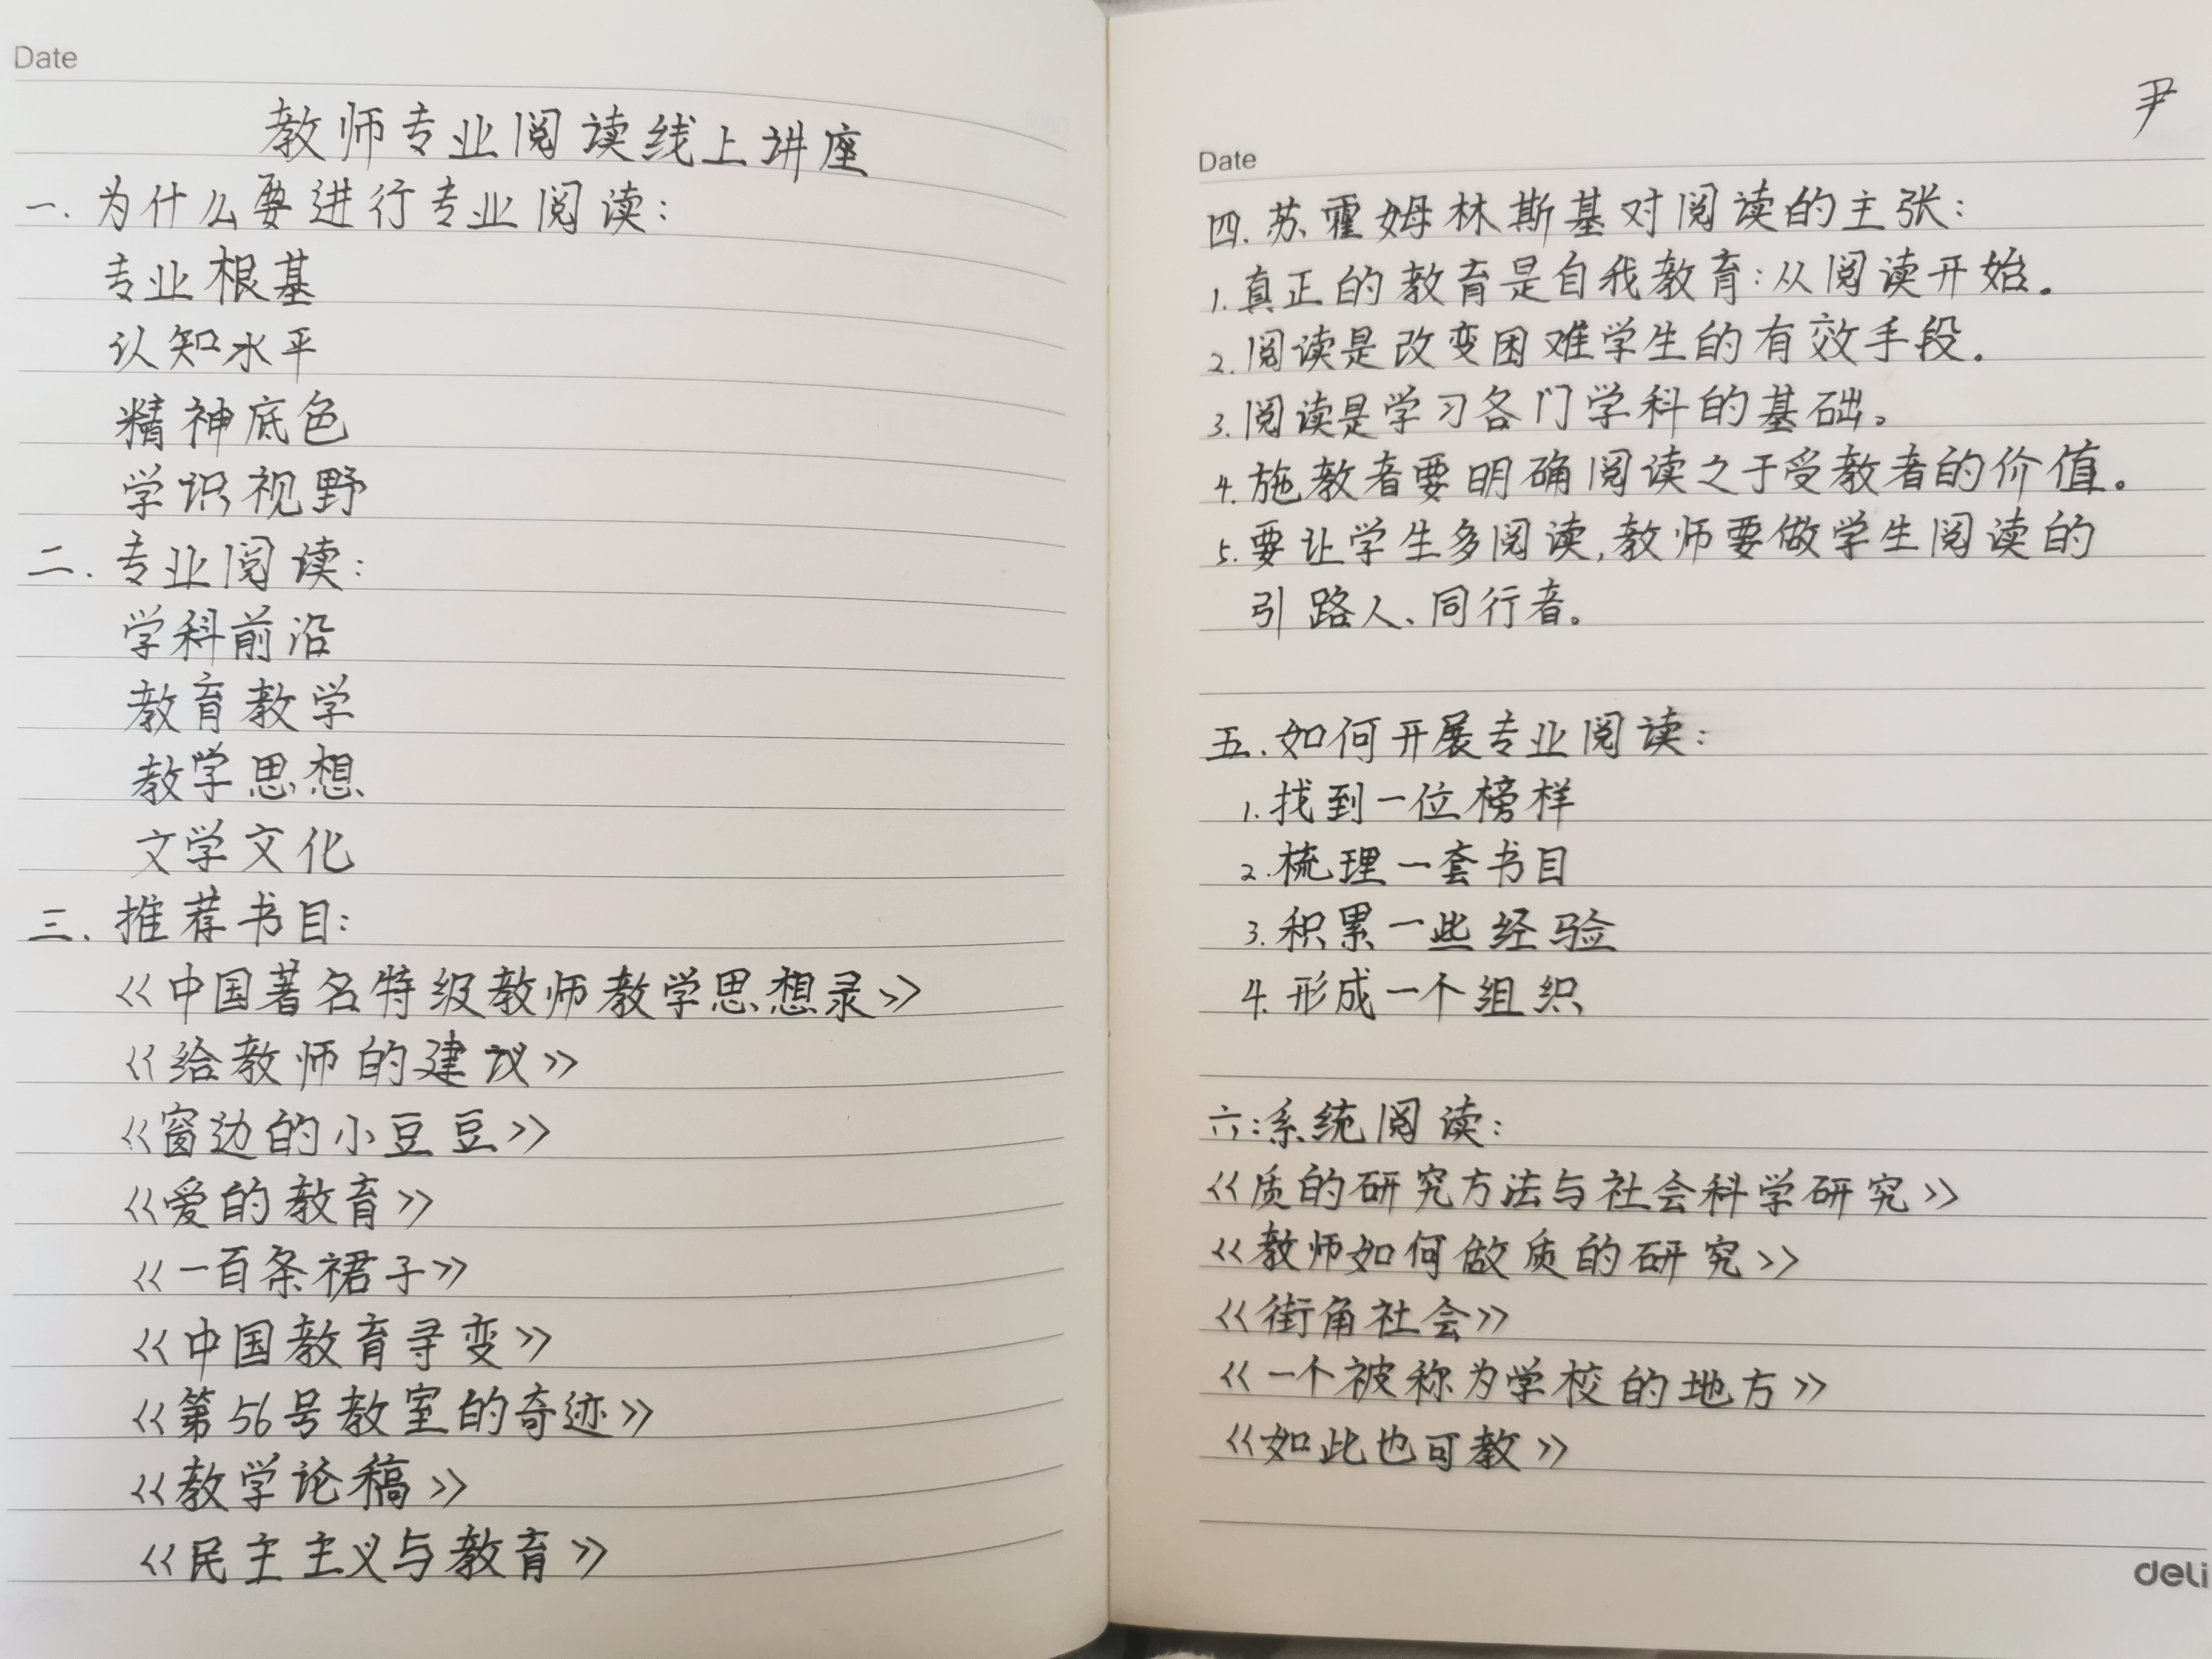 Date
教师专业阅读线上讲座
一.为什么要进行专业阅读:
专业根基
认知水平
精神底色
学识视野
二.专业阅读:
学科前沿
教育教学
教学思想
文学文化
三.推荐书目:
《中国著名特级教师教学思想录》
《给教师的建议》
《窗边的小豆豆》
《爱的教育》
《一百条裙子》
《中国教育寻变》
《第56号教室的奇迹》
《教学论稿》
《民主主义与教育》
尹
Date
四.苏霍姆林斯基对阅读的主张:
1.真正的教育是自我教育:从阅读开始。
2.阅读是改变困难学生的有效手段。
3.阅读是学习各门学科的基础。
4.施教者要明确阅读之于受教者的价值。
5.要让学生多阅读,教师要做学生阅读的
引路人、同行者。
五.如何开展专业阅读:
1.找到一位榜样
2.梳理一套书目
3.积累一些经验
4.形成一个组织
六:系统阅读:
《质的研究方法与社会科学研究》
《教师如何做质的研究》
《街角社会》
《一个被称为学校的地方》
《如此也可教》
deli